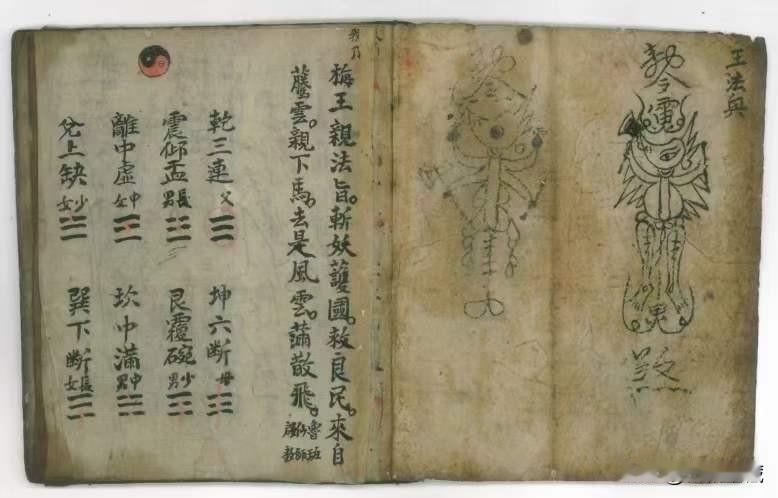 王法與
勅令
勅令
梅王親法旨。斬妖護國。救良民。來自
騰雲。親下馬。去是風雲。蕭散飛。
魯班
乾三連 父
坤六斷 母
震仰盂 長男
艮覆碗 少男
離中虛 中女
坎中滿 中男
兌上缺 少女
巽下斷 長女